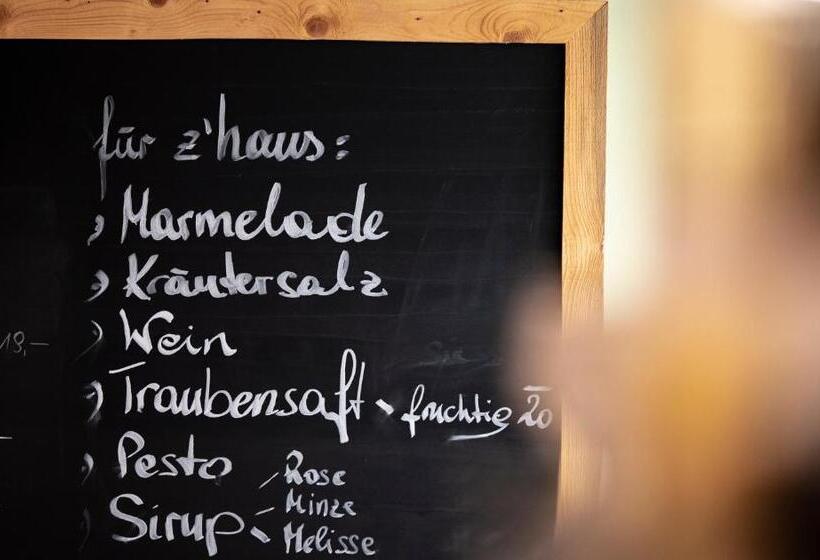 für z'haus:
Marmelade
Kräutersalz
Wein
19,–
Traubensaft - fruchtig 20
Pesto
Rose
Minze
Sirup
Melisse